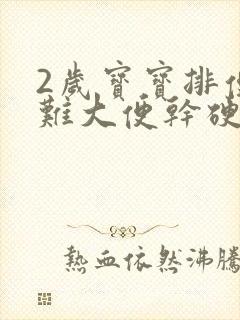 2歲寶寶排便
難大便幹硬
熱血依然沸騰